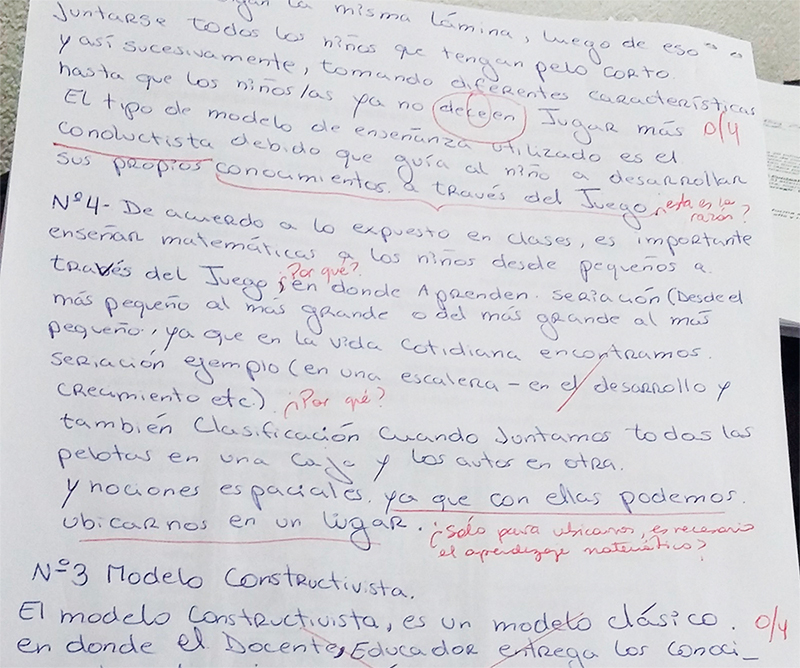 la misma lámina, luego de eso
Juntarse todos los niños que tengan pelo corto.
y así sucesivamente, tomando diferentes características
hasta que los niños/as ya no deceen Jugar más 0/4
El tipo de modelo de enseñanza utilizado es el
conductista debido que guía al niño a desarrollar
sus propios conocimientos. a través del Juego ¿esta es la razón?
Nº4- De acuerdo a lo expuesto en clases, es importante
enseñar matemáticas a los niños desde pequeños a
través del Juego ¿Por qué? en donde Aprenden. seriación (Desde el
más pequeño al más grande o del más grande al más
pequeño, ya que en la vida cotidiana encontramos.
seriación ejemplo (en una escalera - en el desarrollo y
crecimiento etc.) ¿Por qué?
también Clasificación Cuando Juntamos todas las
pelotas en una caja y los autos en otra.
y nociones espaciales. ya que con ellas podemos.
ubicarnos en un lugar. ¿Sólo para ubicarnos, es necesario
el aprendizaje matemático?
Nº3 Modelo Constructivista.
El modelo Constructivista, es un modelo clásico. 0/4
en donde el Docente, Educador entrega los conoci_